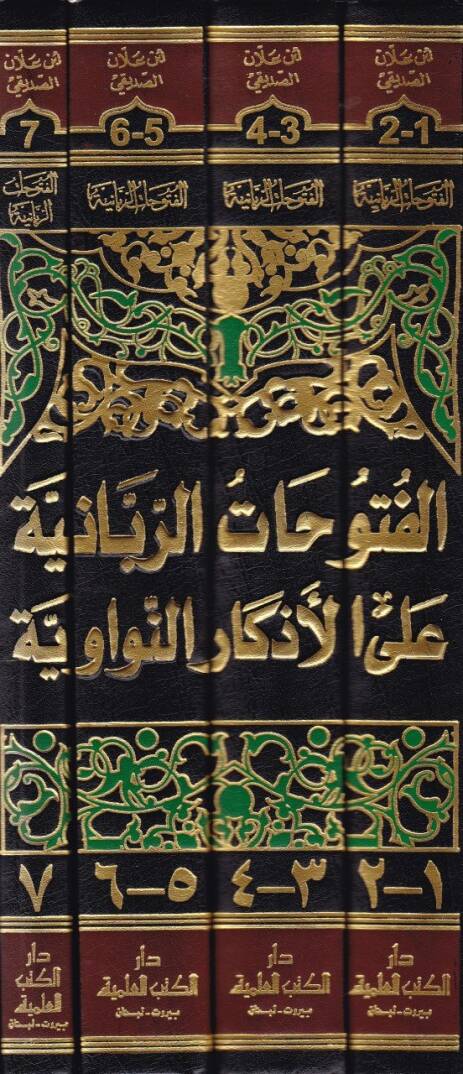 ابن علان
الصديقي
2-1
الفتوحات الربانية
ابن علان
الصديقي
4-3
الفتوحات الربانية
ابن علان
الصديقي
6-5
الفتوحات الربانية
ابن علان
الصديقي
7
الفتوحات
الربانية
الفُتوُحَاتُ الرَّبَّانيَّة
عَلىَ الأذكار النَّواويَّة
١-٢
دار
الكتب العلمية
بيروت-لبنان
٣-٤
دار
الكتب العلمية
بيروت-لبنان
٥-٦
دار
الكتب العلمية
بيروت-لبنان
٧
دار
الكتب
العلمية
بيروت-لبنان